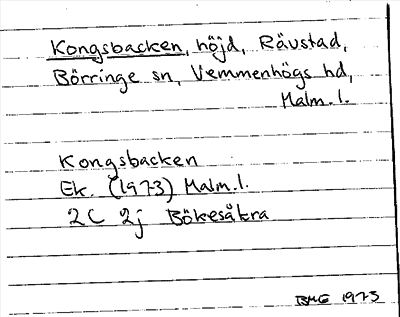 Kongsbacken, höjd, Rävstad,
Börringe sn, Vemmenhögs hd,
Malm.l.
Kongsbacken
Ek. (1973) Malm.l.
2C 2j Bökesåkra
BMG 1973